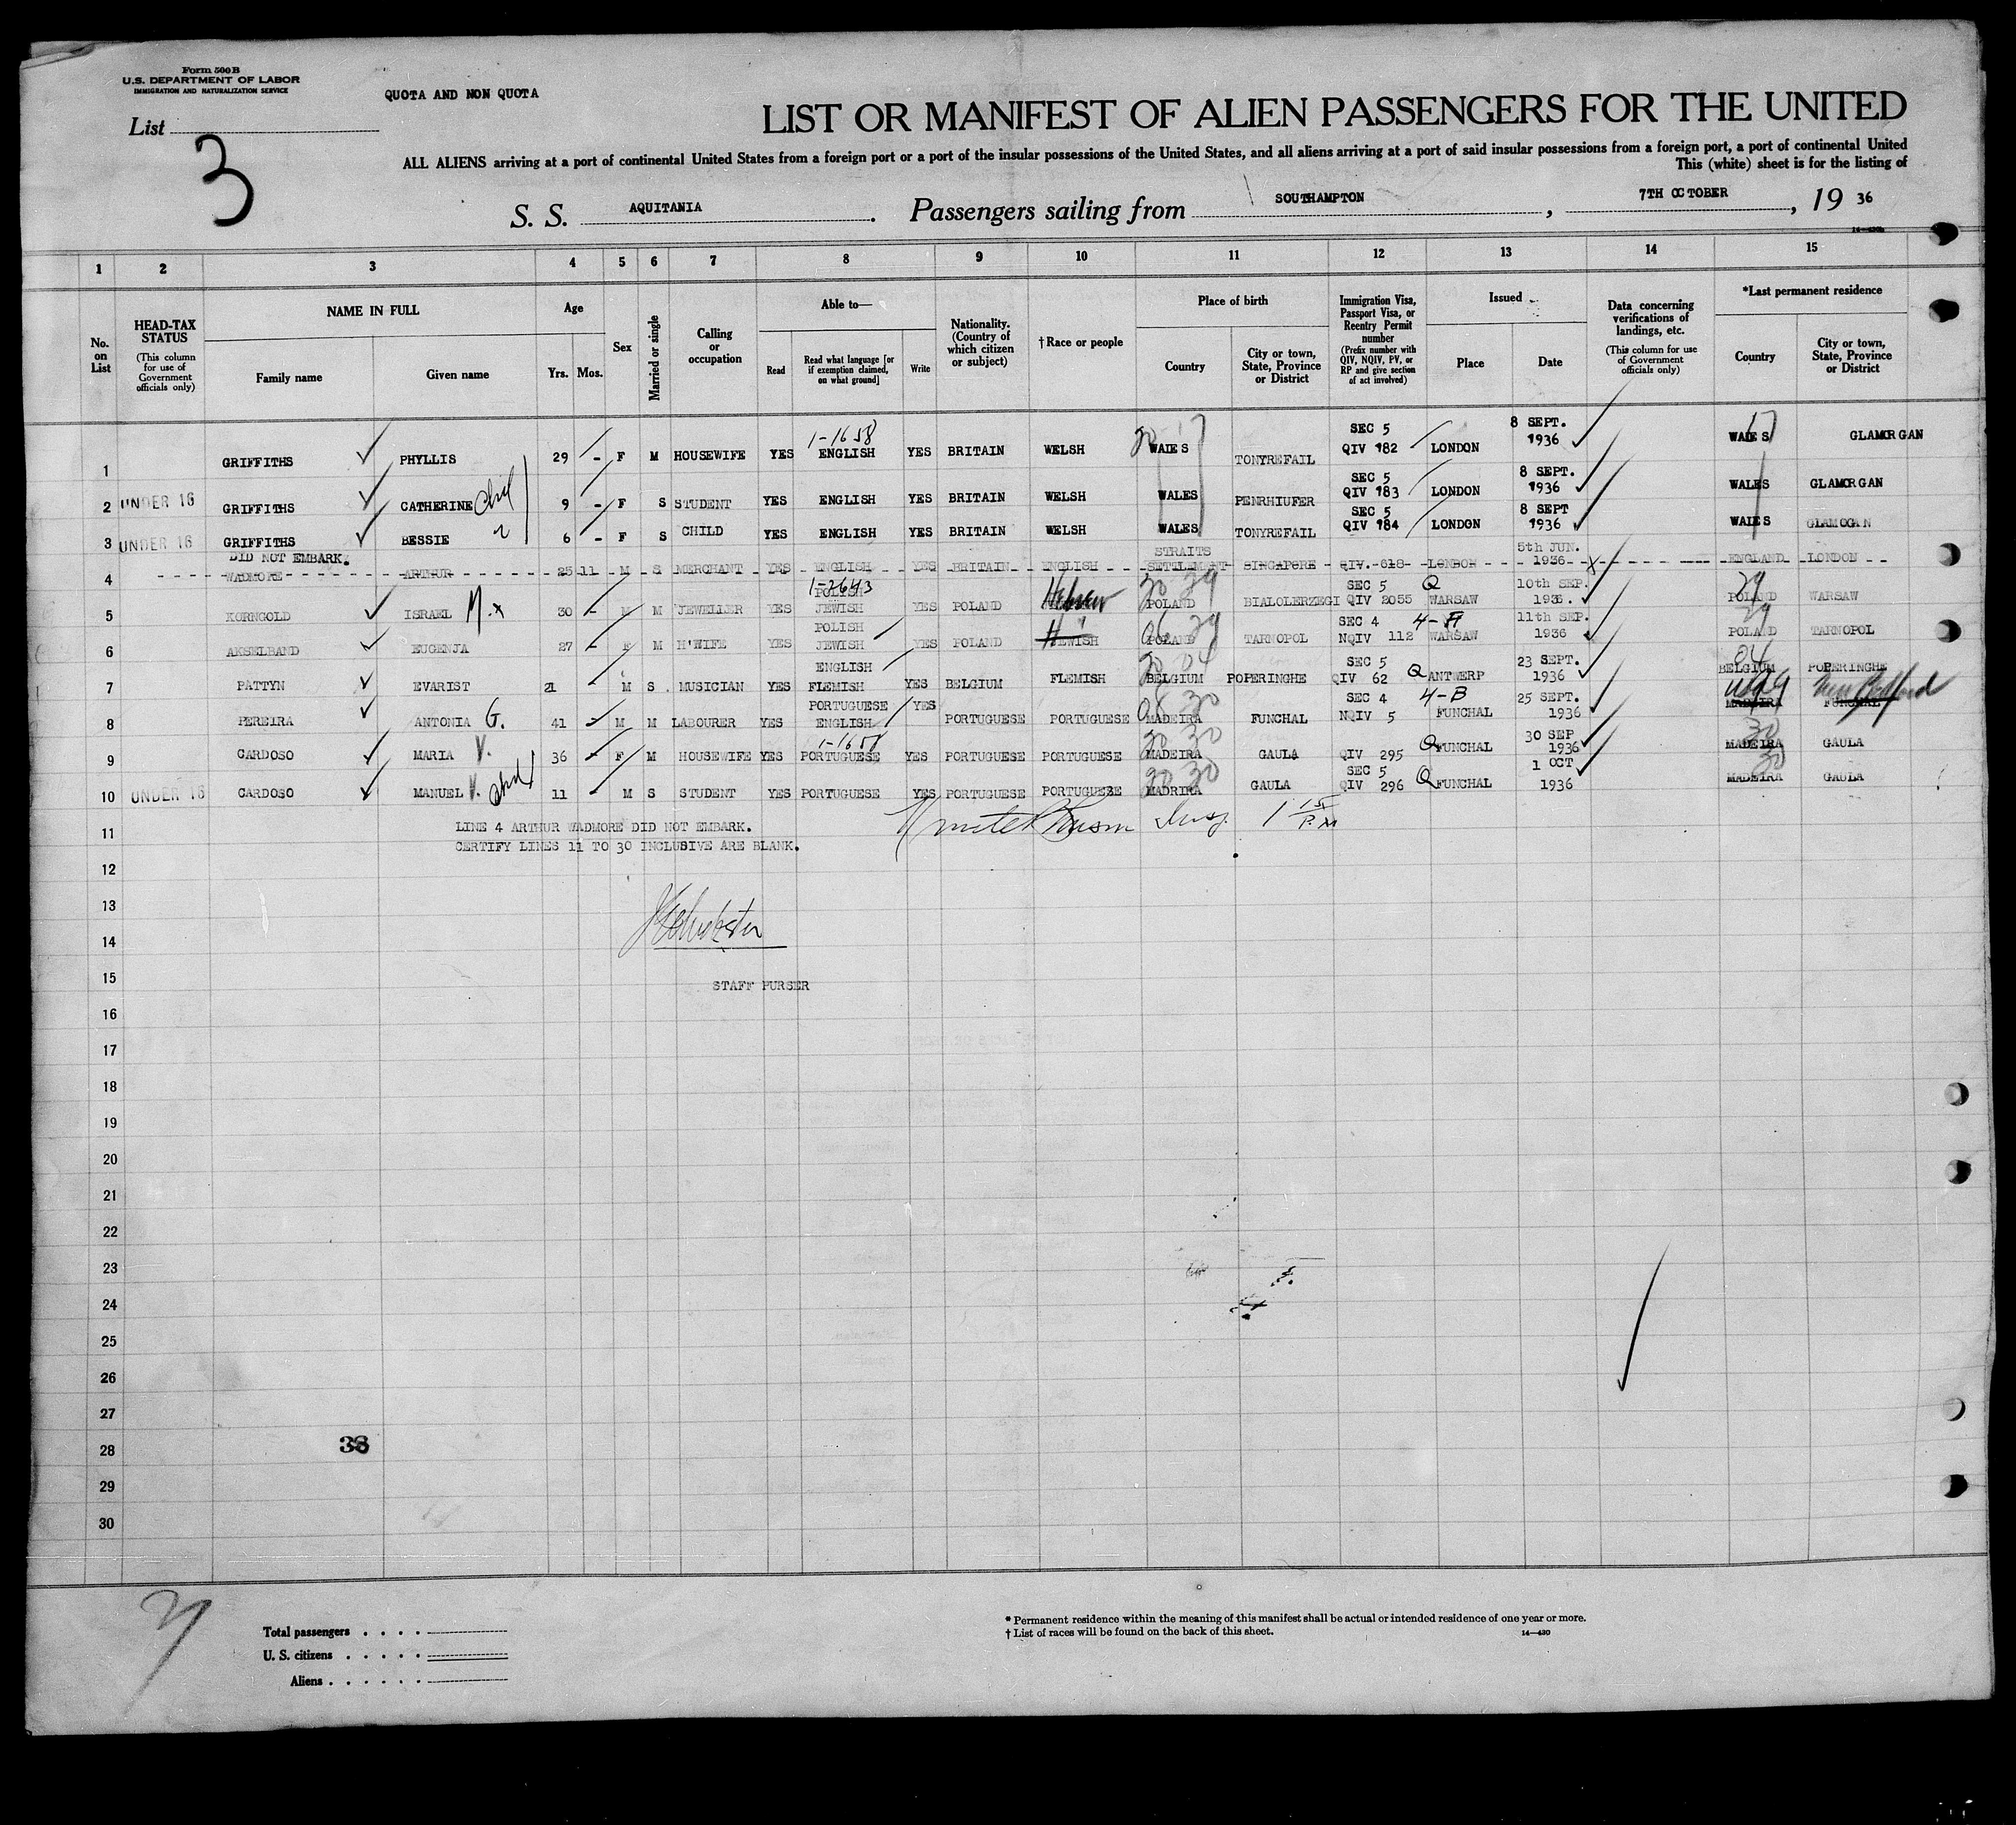 Form 500 B
U.S. DEPARTMENT OF LABOR
IMMIGRATION AND NATURALIZATION SERVICE
QUOTA AND NON QUOTA
List
3
LIST OR MANIFEST OF ALIEN PASSENGERS FOR THE UNITED
ALL ALIENS arriving at a port of continental United States from a foreign port or a port of the insular possessions of the United States, and all aliens arriving at a port of said insular possessions from a foreign port, a port of continental United
This (white) sheet is for the listing of
S. S. AQUITANIA . Passengers sailing from SOUTHAMPTON , 7TH OCTOBER , 19 36
1 2 3 4 5 6 7 8 9 10 11 12 13 14 15
No. on List
HEAD-TAX STATUS
(This column for use of Government officials only)
NAME IN FULL
Family name
Given name
Age
Yrs. Mos.
Sex
Married or single
Calling or occupation
Able to—
Read
Read what language [or if exemption claimed, on what ground]
Write
Nationality. (Country of which citizen or subject)
† Race or people
Place of birth
Country
City or town, State, Province or District
Immigration Visa, Passport Visa, or Reentry Permit number
(Prefix number with QIV, NQIV, PV, or RP and give section of act involved)
Issued
Place
Date
Data concerning verifications of landings, etc.
(This column for use of Government officials only)
*Last permanent residence
Country
City or town, State, Province or District
1-1658 SEC 5 8 SEPT.
1 GRIFFITHS PHYLLIS 29 - F M HOUSEWIFE YES ENGLISH YES BRITAIN WELSH WALES TONYREFAIL QIV 182 LONDON 1936 WALES GLAMORGAN
SEC 5 8 SEPT.
2 UNDER 16 GRIFFITHS CATHERINE 9 - F S STUDENT YES ENGLISH YES BRITAIN WELSH WALES PENRHIUFER QIV 183 LONDON 1936 WALES GLAMORGAN
SEC 5 8 SEPT
3 UNDER 16 GRIFFITHS BESSIE 6 - F S CHILD YES ENGLISH YES BRITAIN WELSH WALES TONYREFAIL QIV 184 LONDON 1936 WALES GLAMOGAN
DID NOT EMBARK. STRAITS 5th JUN.
4 WADMORE ARTHUR 25 11 M S MERCHANT YES ENGLISH YES BRITAIN ENGLISH SETTLEMENT SINGAPORE QIV. 618 LONDON 1936 ENGLAND LONDON
1-2643 POLISH Hebrew 20 29 SEC 5 Q 10th SEP. 29
5 KORNGOLD ISRAEL M. 30 - M M JEWELLER YES JEWISH YES POLAND POLAND BIALOLERZEGI QIV 2055 WARSAW 1936. POLAND WARSAW
POLISH SEC 4 4-A 11th SEP. 29
6 AKSELBAND EUGENJA 27 - F M H'WIFE YES JEWISH YES POLAND JEWISH POLAND TARNOPOL NQIV 112 WARSAW 1936 POLAND TARNOPOL
ENGLISH 20 04 SEC 5 23 SEPT. 04
7 PATTYN EVARIST 21 - M S MUSICIAN YES FLEMISH YES BELGIUM FLEMISH BELGIUM POPERINGHE QIV 62 Q ANTWERP 1936 BELGIUM POPERINGHE
PORTUGUESE YES 30 SEC 4 4-B 25 SEPT. New Bedford
8 PEREIRA ANTONIA G. 41 - M M LABOURER YES ENGLISH PORTUGUESE PORTUGUESE MADEIRA FUNCHAL NQIV 5 FUNCHAL 1936 MADEIRA FUNCHAL
1-1658 20 30 30 SEP 30
9 CARDOSO MARIA V. 36 - F M HOUSEWIFE YES PORTUGUESE YES PORTUGUESE PORTUGUESE MADEIRA GAULA QIV 295 Q FUNCHAL 1936 MADEIRA GAULA
20 30 SEC 5 1 OCT 30
10 UNDER 16 CARDOSO MANUEL V. 11 - M S STUDENT YES PORTUGUESE YES PORTUGUESE PORTUGUESE MADRIRA GAULA QIV 296 Q FUNCHAL 1936 MADEIRA GAULA
11 LINE 4 ARTHUR WADMORE DID NOT EMBARK.
CERTIFY LINES 11 TO 30 INCLUSIVE ARE BLANK.
12
13
14
15 STAFF PURSER
16
17
18
19
20
21
22
23
24
25
26
27
28 38
29
30
Total passengers
U. S. citizens
Aliens
* Permanent residence within the meaning of this manifest shall be actual or intended residence of one year or more.
† List of races will be found on the back of this sheet.
14—430